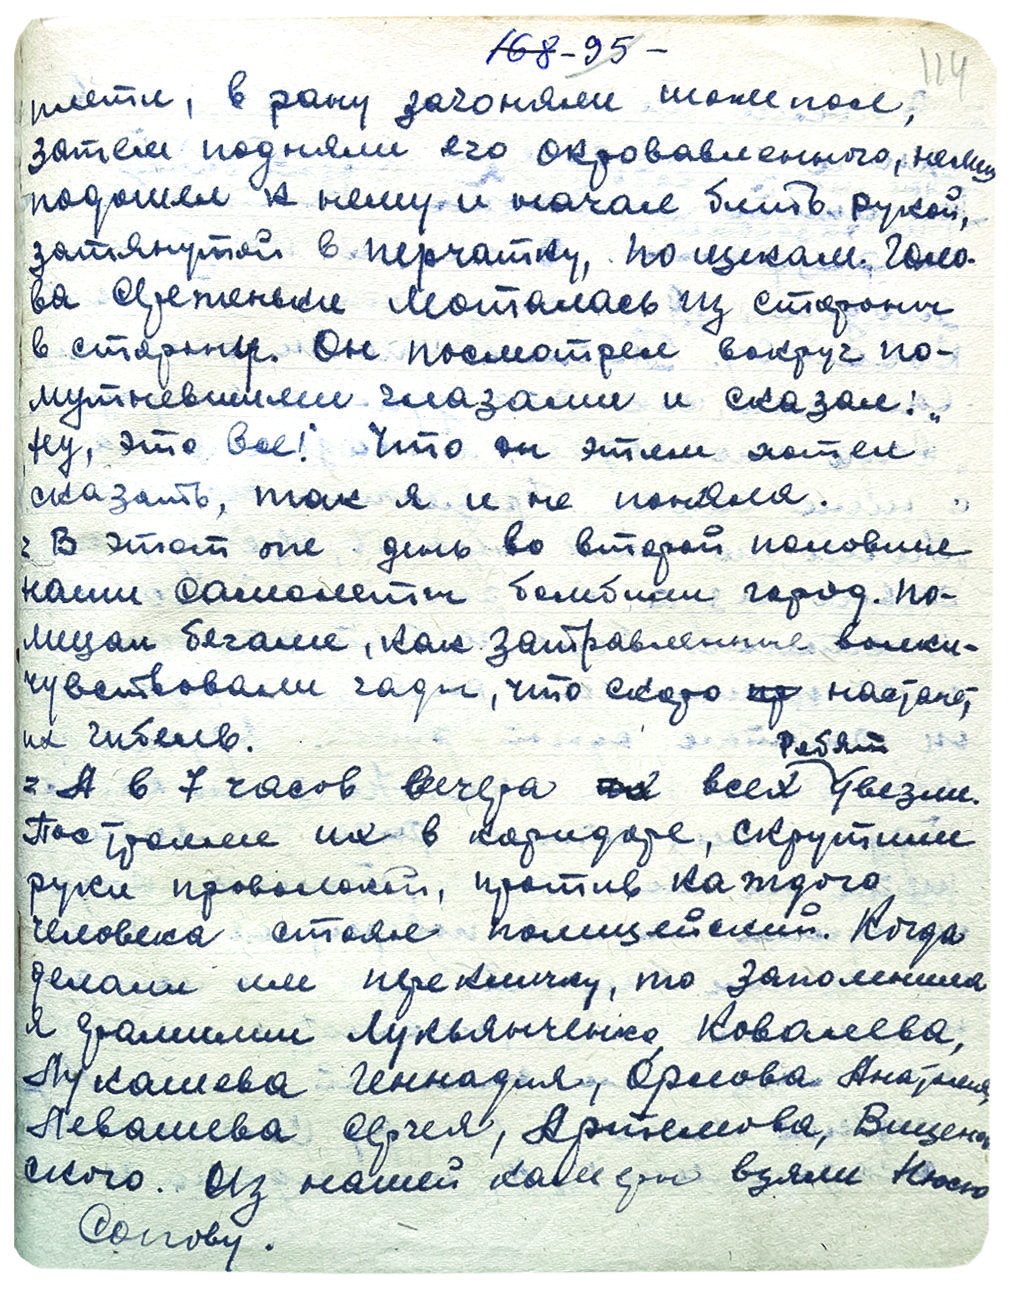 168-95-
114
плети, в рану загоняли шомпол,
затем подняли его окровавленного, немец
подошел к нему и начал бить рукой,
затянутой в перчатку, по щекам. Голо-
ва Сереженьки моталась из стороны
в сторону. Он посмотрел вокруг по-
мутневшими глазами и сказал: „
ну, это все! Что он этим хотел
сказать, так я и не поняла.
В этот же день во второй половине
наши самолеты бомбили город. По-
лицаи бегали, как затравленные волки-
чувствовали гады, что скоро настанет
их гибель.
Ребят
А в 7 часов вечера их всех увезли.
Построили их в коридоре, скрутили
руки проволокой, против каждого
человека стоял полицейский. Когда
делали им перекличку, то запомнила
я фамилии Лукьянченко, Ковалева,
Лукашева Геннадия, Орлова Анатолия,
Левашева Сергея, Артемова, Виценов
ского. Из нашей камеры взяли Нюсю
Сопову.